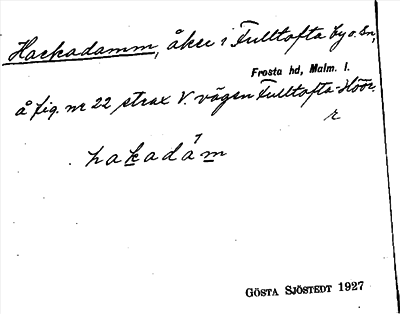 Hackadamm, åker i Fulltofta by o. sn,
Frosta hd, Malm. l.
å fig. nr 22 strax V. vägen Fulltofta-Höör.
r
hakadàm
GÖSTA SJÖSTEDT 1927